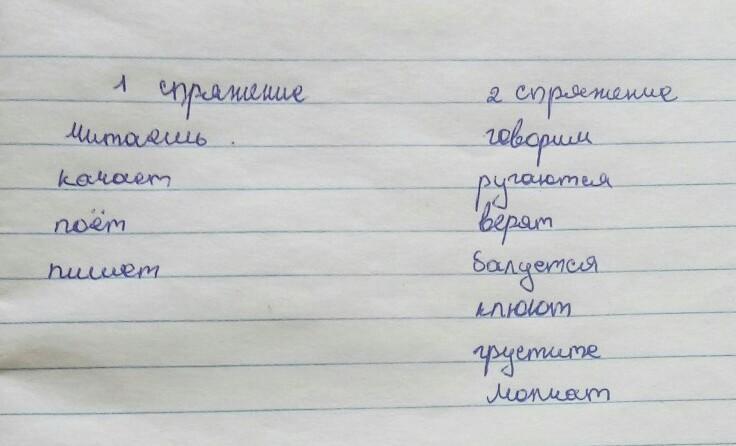 1 спряжение
читаешь
качает
поёт
пишет
2 спряжение
говорим
ругаются
верят
балуется
клюют
грустите
молчат